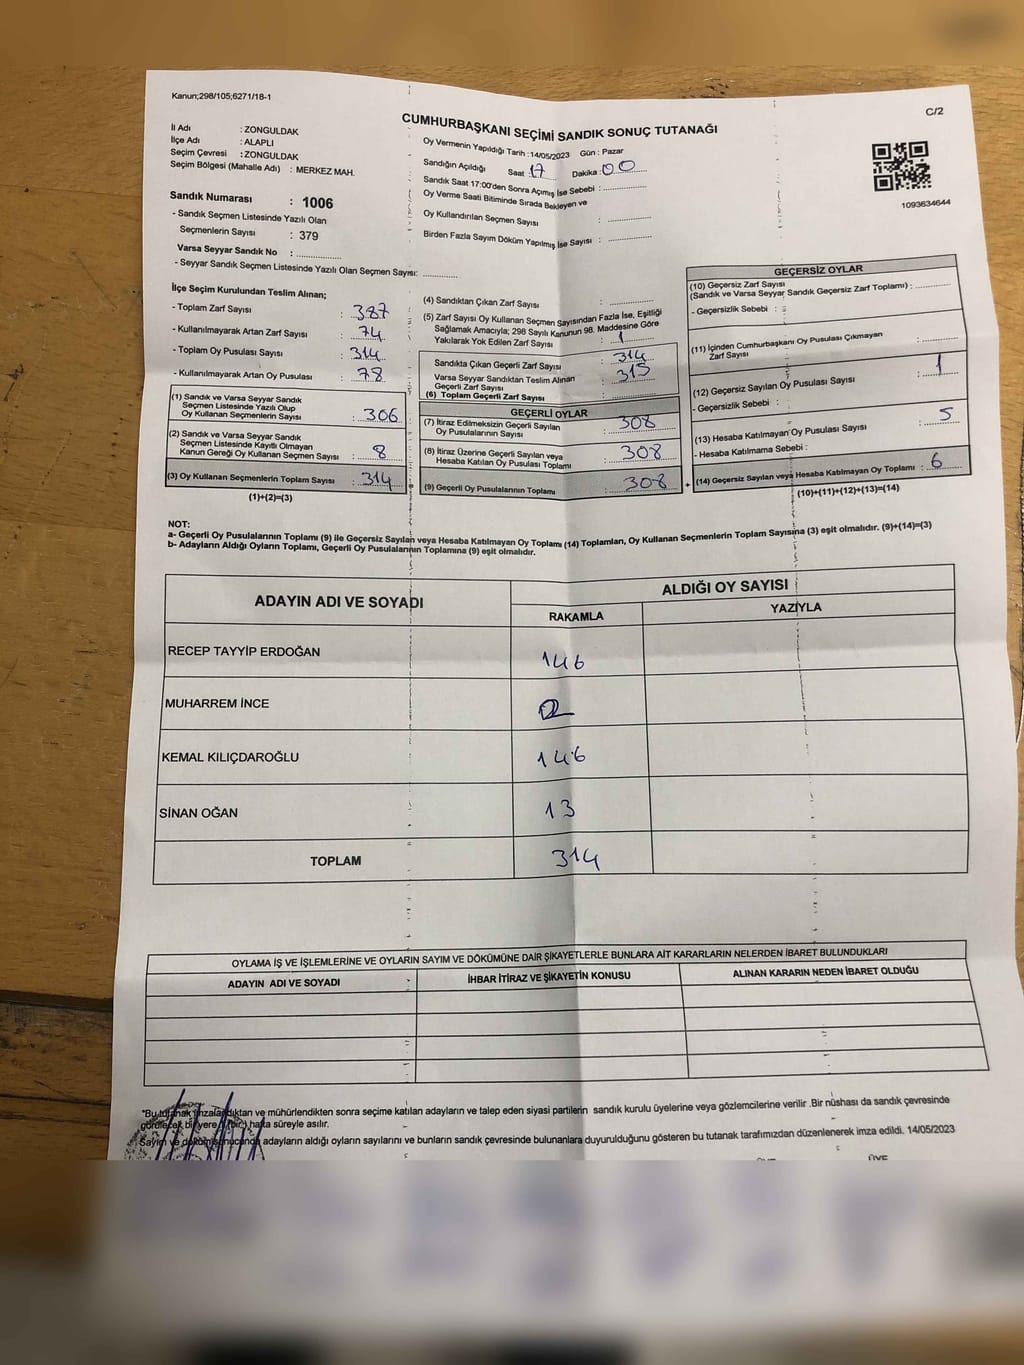 Kanun;298/105;6271/18-1
C/2
CUMHURBAŞKANI SEÇİMİ SANDIK SONUÇ TUTANAĞI
İl Adı : ZONGULDAK
İlçe Adı : ALAPLI
Seçim Çevresi : ZONGULDAK
Seçim Bölgesi (Mahalle Adı) : MERKEZ MAH.
Oy Vermenin Yapıldığı Tarih :14/05/2023 Gün : Pazar
Sandığın Açıldığı Saat 17 Dakika : 00
Sandık Saat 17:00'den Sonra Açımış İse Sebebi :
Oy Verme Saati Bitiminde Sırada Bekleyen ve
Oy Kullandırılan Seçmen Sayısı :
Birden Fazla Sayım Döküm Yapılmış İse Sayısı :
1093634644
Sandık Numarası : 1006
- Sandık Seçmen Listesinde Yazılı Olan
Seçmenlerin Sayısı : 379
Varsa Seyyar Sandık No :
- Seyyar Sandık Seçmen Listesinde Yazılı Olan Seçmen Sayısı:
İlçe Seçim Kurulundan Teslim Alınan;
- Toplam Zarf Sayısı : 387
- Kullanılmayarak Artan Zarf Sayısı : 74
- Toplam Oy Pusulası Sayısı : 314
- Kullanılmayarak Artan Oy Pusulası : 78
(1) Sandık ve Varsa Seyyar Sandık
Seçmen Listesinde Yazılı Olup
Oy Kullanan Seçmenlerin Sayısı : 306
(2) Sandık ve Varsa Seyyar Sandık
Seçmen Listesinde Kayıtlı Olmayan
Kanun Gereği Oy Kullanan Seçmen Sayısı : 8
(3) Oy Kullanan Seçmenlerin Toplam Sayısı : 314
(1)+(2)=(3)
(4) Sandıktan Çıkan Zarf Sayısı :
(5) Zarf Sayısı Oy Kullanan Seçmen Sayısından Fazla İse, Eşitliği
Sağlamak Amacıyla; 298 Sayılı Kanunun 98. Maddesine Göre
Yakılarak Yok Edilen Zarf Sayısı : 1
Sandıkta Çıkan Geçerli Zarf Sayısı : 314
Varsa Seyyar Sandıktan Teslim Alınan
Geçerli Zarf Sayısı : 315
(6) Toplam Geçerli Zarf Sayısı
GEÇERLİ OYLAR
(7) İtiraz Edilmeksizin Geçerli Sayılan
Oy Pusulalarının Sayısı : 308
(8) İtiraz Üzerine Geçerli Sayılan veya
Hesaba Katılan Oy Pusulası Toplamı : 308
(9) Geçerli Oy Pusulalarının Toplamı : 308
GEÇERSİZ OYLAR
(10) Geçersiz Zarf Sayısı
(Sandık ve Varsa Seyyar Sandık Geçersiz Zarf Toplamı) :
- Geçersizlik Sebebi :
(11) İçinden Cumhurbaşkanı Oy Pusulası Çıkmayan
Zarf Sayısı :
(12) Geçersiz Sayılan Oy Pusulası Sayısı : 1
- Geçersizlik Sebebi :
(13) Hesaba Katılmayan Oy Pusulası Sayısı : 5
- Hesaba Katılmama Sebebi :
+ (14) Geçersiz Sayılan veya Hesaba Katılmayan Oy Toplamı : 6
(10)+(11)+(12)+(13)=(14)
NOT:
a- Geçerli Oy Pusulalarının Toplamı (9) ile Geçersiz Sayılan veya Hesaba Katılmayan Oy Toplamı (14) Toplamları, Oy Kullanan Seçmenlerin Toplam Sayısına (3) eşit olmalıdır. (9)+(14)=(3)
b- Adayların Aldığı Oyların Toplamı, Geçerli Oy Pusulalarının Toplamına (9) eşit olmalıdır.
ADAYIN ADI VE SOYADI
ALDIĞI OY SAYISI
RAKAMLA YAZIYLA
RECEP TAYYİP ERDOĞAN 146
MUHARREM İNCE 2
KEMAL KILIÇDAROĞLU 146
SİNAN OĞAN 13
TOPLAM 314
OYLAMA İŞ VE İŞLEMLERİNE VE OYLARIN SAYIM VE DÖKÜMÜNE DAİR ŞİKAYETLERLE BUNLARA AİT KARARLARIN NELERDEN İBARET BULUNDUKLARI
ADAYIN ADI VE SOYADI İHBAR İTİRAZ VE ŞİKAYETİN KONUSU ALINAN KARARIN NEDEN İBARET OLDUĞU
*Bu tutanak imzalandıktan ve mühürlendikten sonra seçime katılan adayların ve talep eden siyasi partilerin sandık kurulu üyelerine veya gözlemcilerine verilir .Bir nüshası da sandık çevresinde
görülecek bir yere 1 (bir) hafta süreyle asılır.
Sayım ve döküm sonucunda adayların aldığı oyların sayılarını ve bunların sandık çevresinde bulunanlara duyurulduğunu gösteren bu tutanak tarafımızdan düzenlenerek imza edildi. 14/05/2023
ÜYE ÜYE